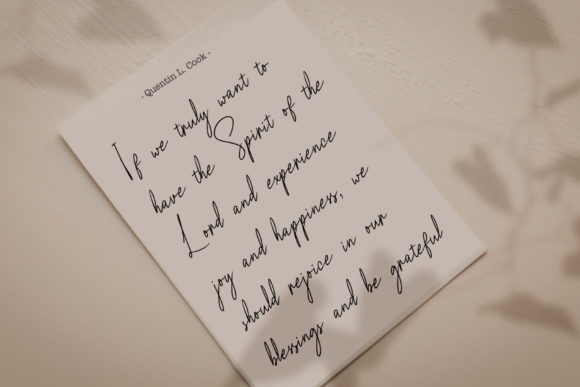 - Quentin L. Cook -
If we truly want to
have the Spirit of the
Lord and experience
joy and happiness, we
should rejoice in our
blessings and be grateful